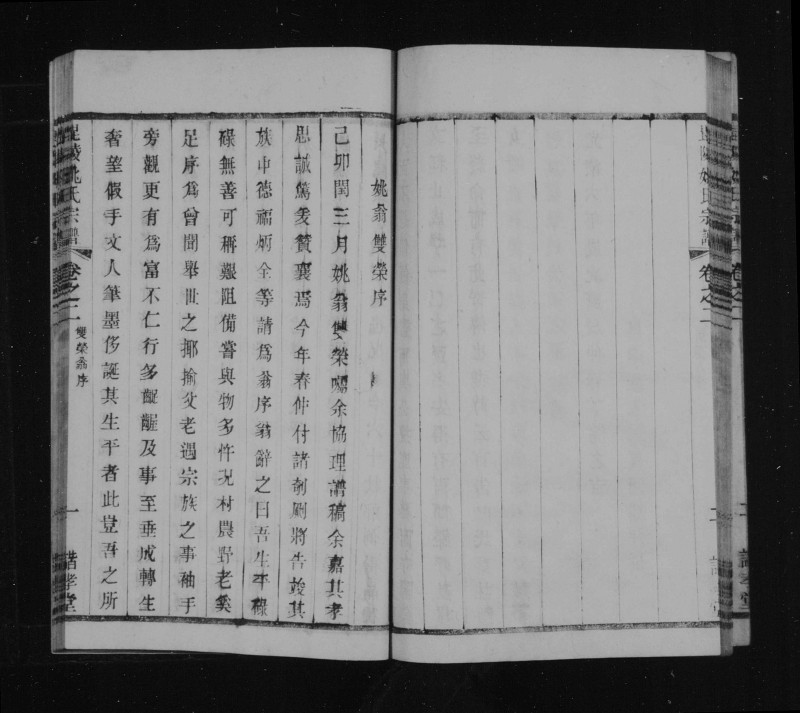 姚翁雙榮序
己卯閏三月姚翁雙榮囑余協理譜稿余嘉其孝
思誠篤爰贊襄焉今年春仲付諸剞劂將告竣其
族中德福炳全等請為翁序翁辭之曰吾生平碌
碌無善可稱艱阻備嘗與物多忤况村農野老奚
足序為曾聞舉世之揶揄父老遇宗族之事袖手
旁觀更有為富不仁行多齷齪及事至垂成轉生
奢望假手文人筆墨侈誕其生平者此豈吾之所
毘陵姚氏宗譜
卷之二
雙榮翁序
一
諧孝堂
毘陵姚氏宗譜
卷之二